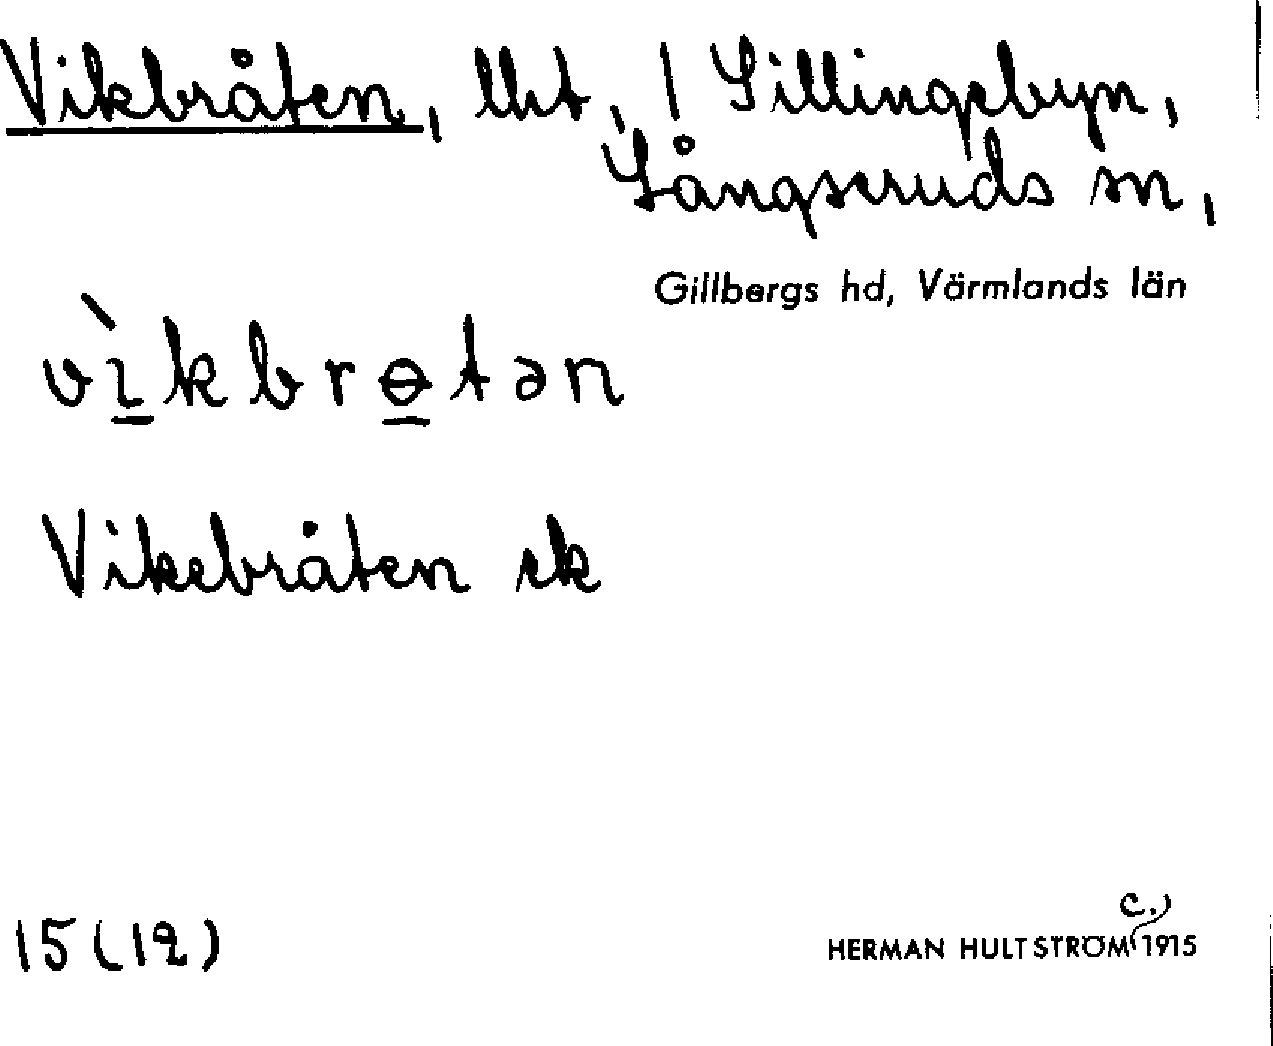 Vikbråten, lht, / Sillingebyn,
Långseruds sn,
Gillbergs hd, Värmlands län
vìkbrɵtən
Vikebråten ek
15 (12)
HERMAN HULTSTRÖM (c.) 1915